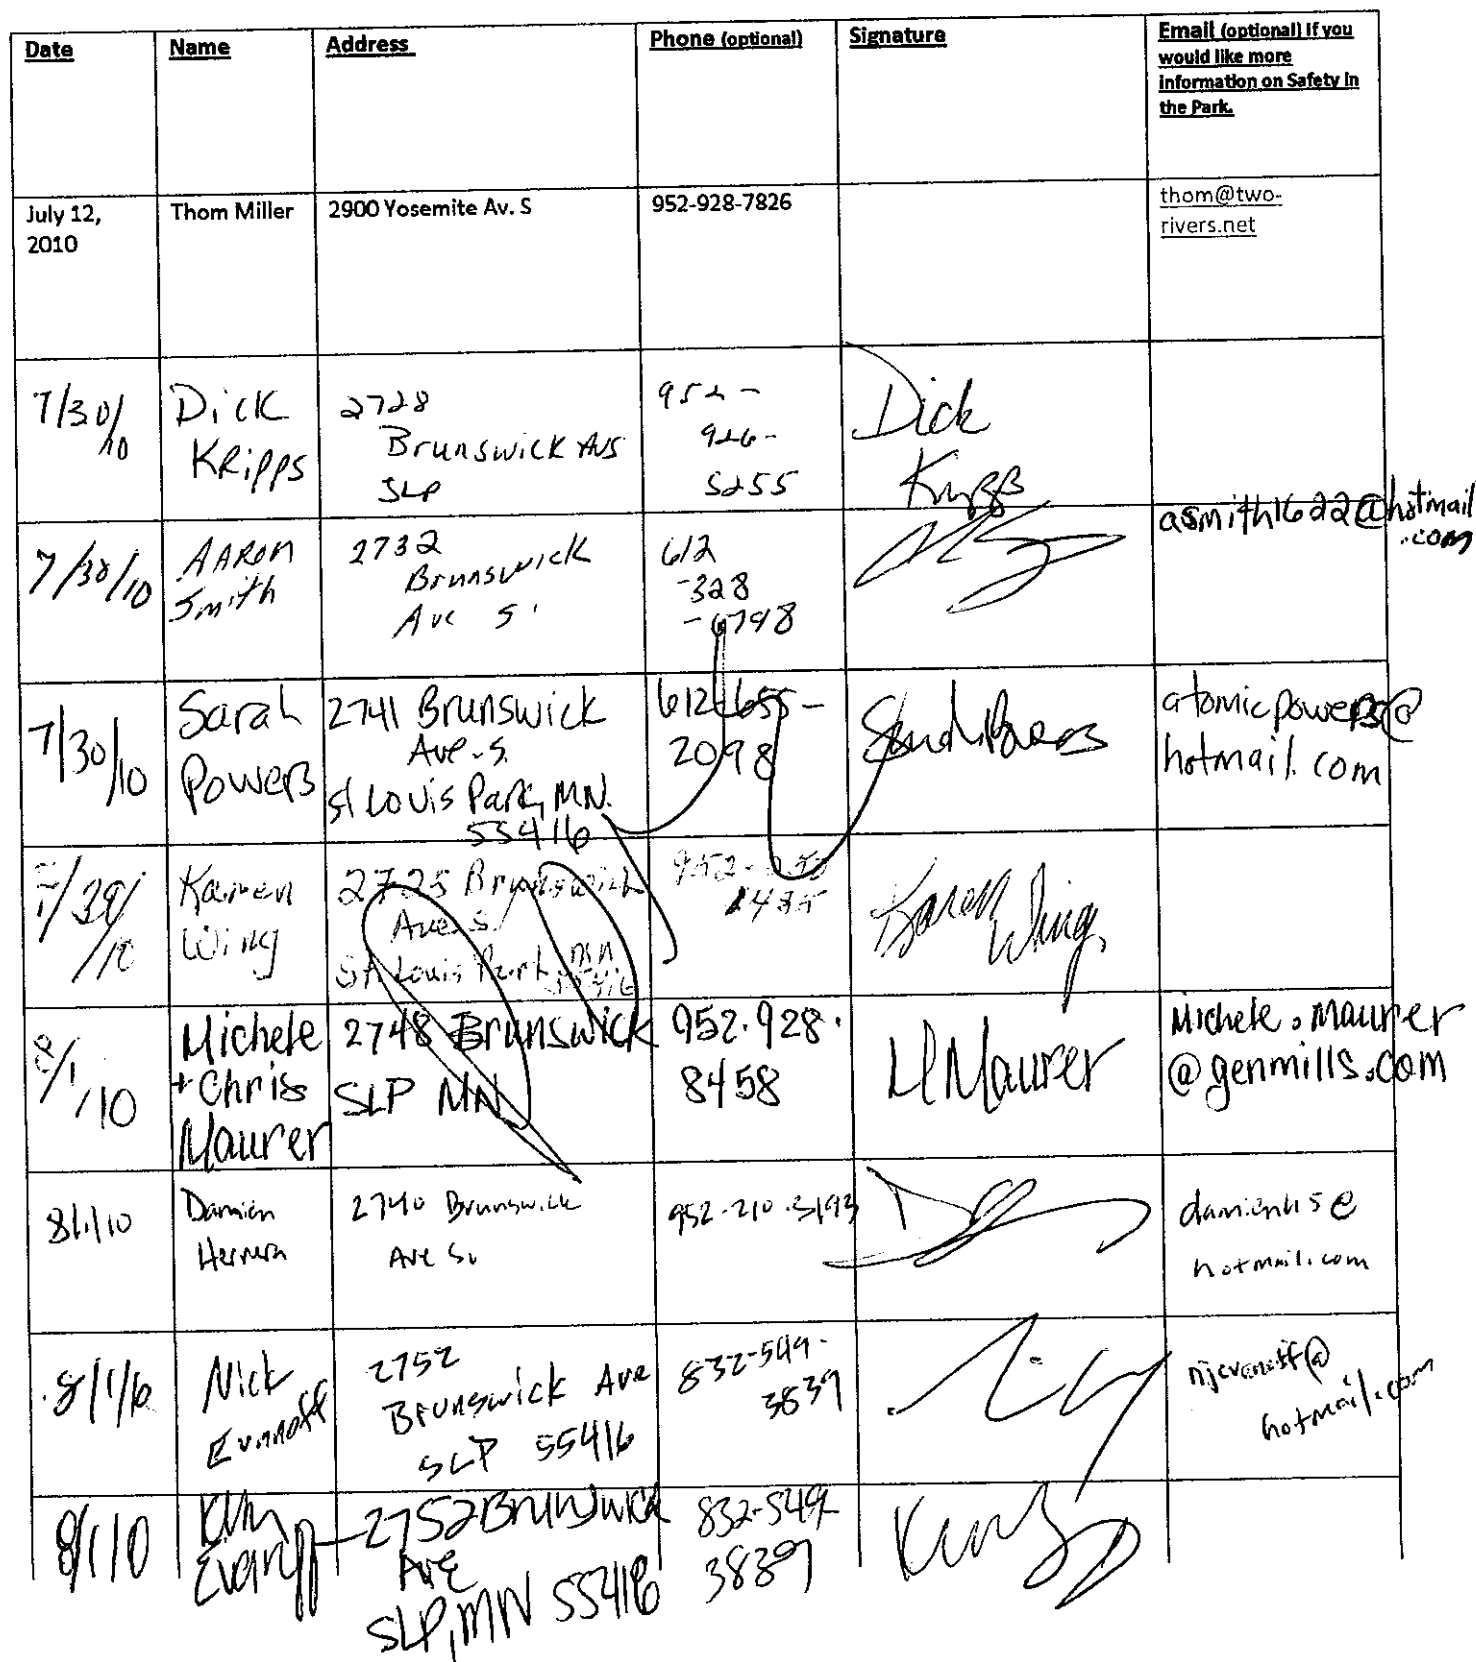 Date Name Address Phone (optional) Signature Email (optional) If you
would like more
information on Safety In
the Park.
July 12,
2010
Thom Miller
2900 Yosemite Av. S
952-928-7826
thom@two-
rivers.net
7/30/
10
Dick
Kripps
2728
Brunswick Ave
SLP
952-
926-
5255
Dick
Kripps
7/30/10
Aaron
Smith
2732
Brunswick
Ave S.
612
-328
-6798
asmith1622@hotmail
.com
7/30/10
Sarah
Powers
2741 Brunswick
Ave. S.
St Louis Park, MN.
55416
612-655-
2098
Sarah Powers
atomicpowers@
hotmail.com
7/30/
10
Karen
Wing
2725 Brunswick
Ave S.
St. Louis Park MN
55416
952-
Karen
Wing
8/1/10
Michele
+ Chris
Maurer
2748 Brunswick
SLP MN
952.928.
8458
M Maurer
Michele.maurer
@genmills.com
8/1/10
Damien
Herrera
2740 Brunswick
Ave So.
952-210-3193
damienh5@
hotmail.com
8/1/10
Nick
Evanoff
2752
Brunswick Ave
SLP 55416
832-549-
3839
njevanoff@
hotmail.com
8/1/10
Kim
Evanoff
2752 Brunswick
Ave
SLP, MN 55416
832-549-
3839